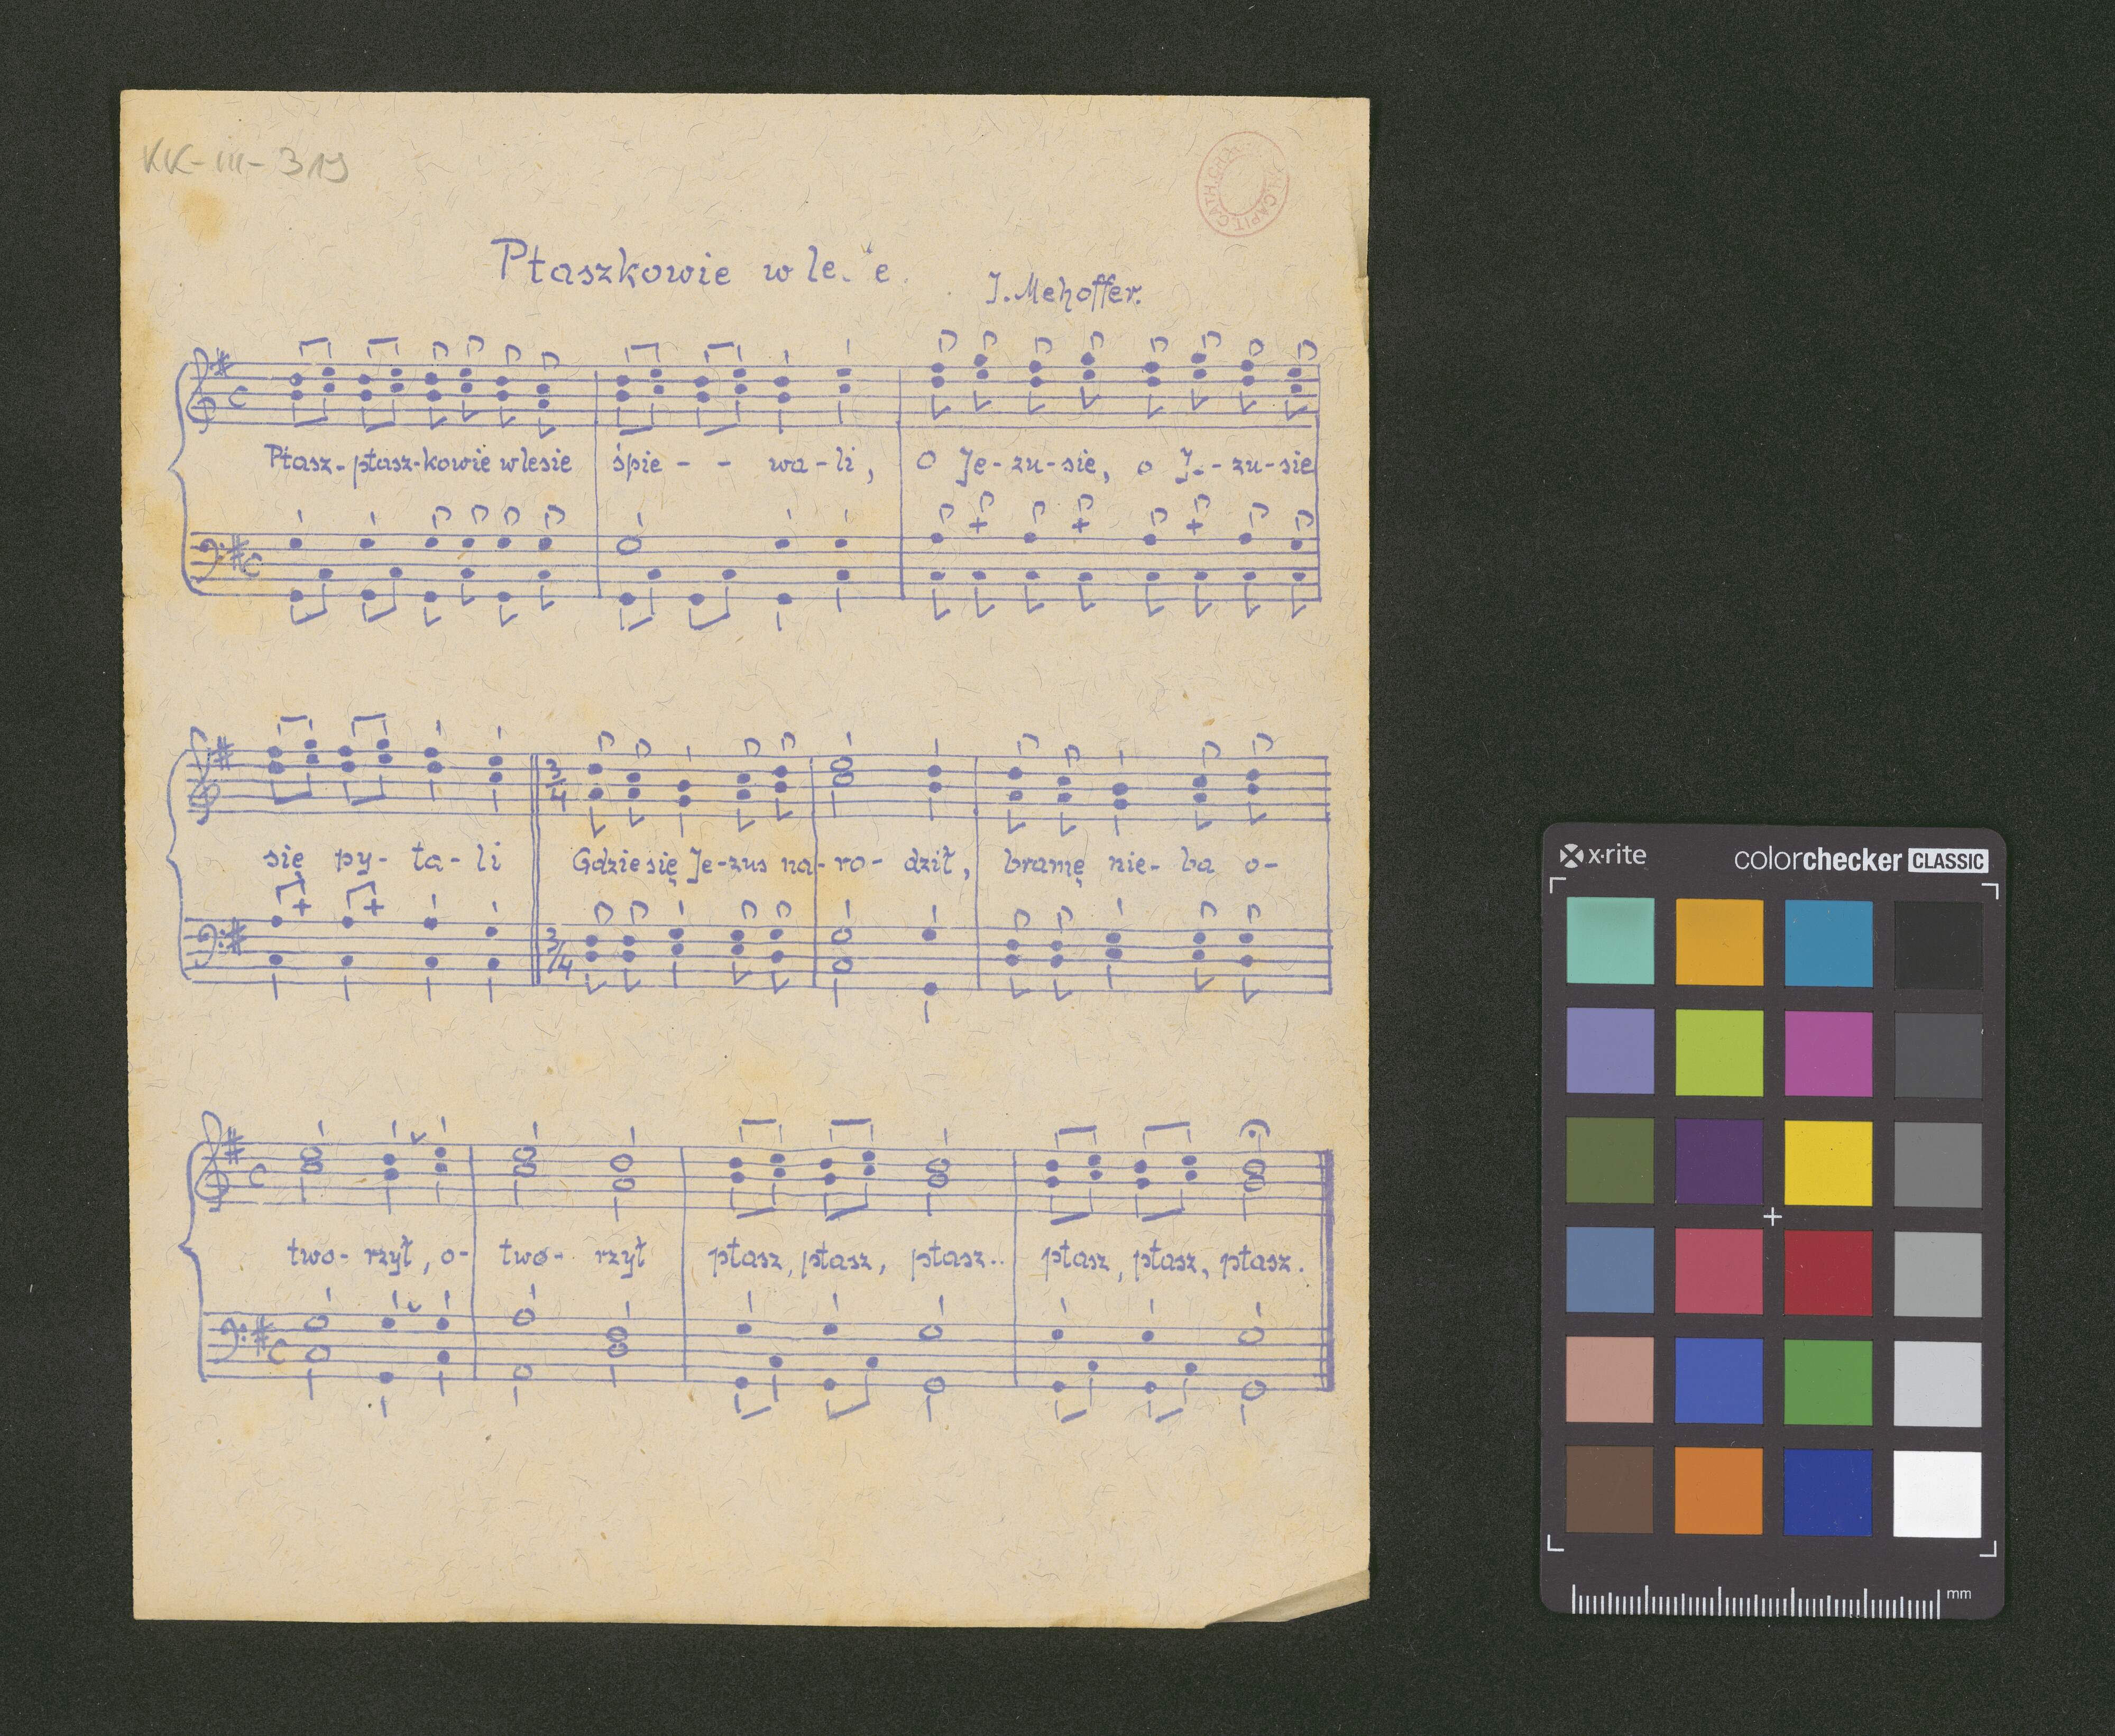 KK-III-319
Ptaszkowie w le. e.
J. Mehoffer.
Ptasz-ptasz-kowie w lesie śpie - - wa-li, O Je-zu-sie, o J.-zu-sie
się py-ta-li Gdzie się Je-zus na-ro-dził, bramę nie-ba o-
3/4
3/4
two-rzył, o-two-rzył ptasz, ptasz, ptasz.. ptasz, ptasz, ptasz.
x·rite colorchecker CLASSIC
mm